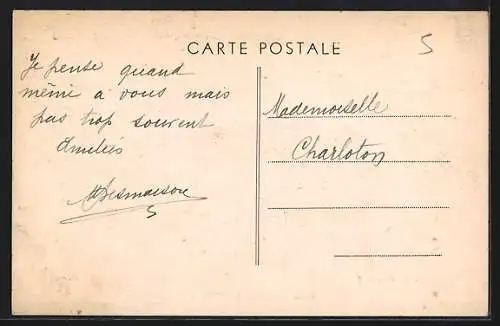 CARTE POSTALE
5
Je pense quand
même a vous mais
pas trop souvent
Amitiés
Mademoiselle
Charloton